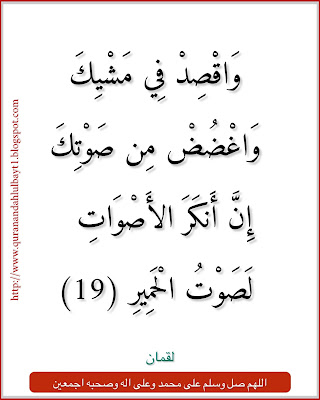 وَاقْصِدْ فِي مَشْيِكَ
وَاغْضُضْ مِن صَوْتِكَ
إِنَّ أَنكَرَ الأَصْوَاتِ
لَصَوْتُ الْحَمِيرِ (19)
لقمان
اللهم صل وسلم على محمد وعلى اله وصحبه اجمعين
http://www.quranandahlulbayt1.blogspot.com